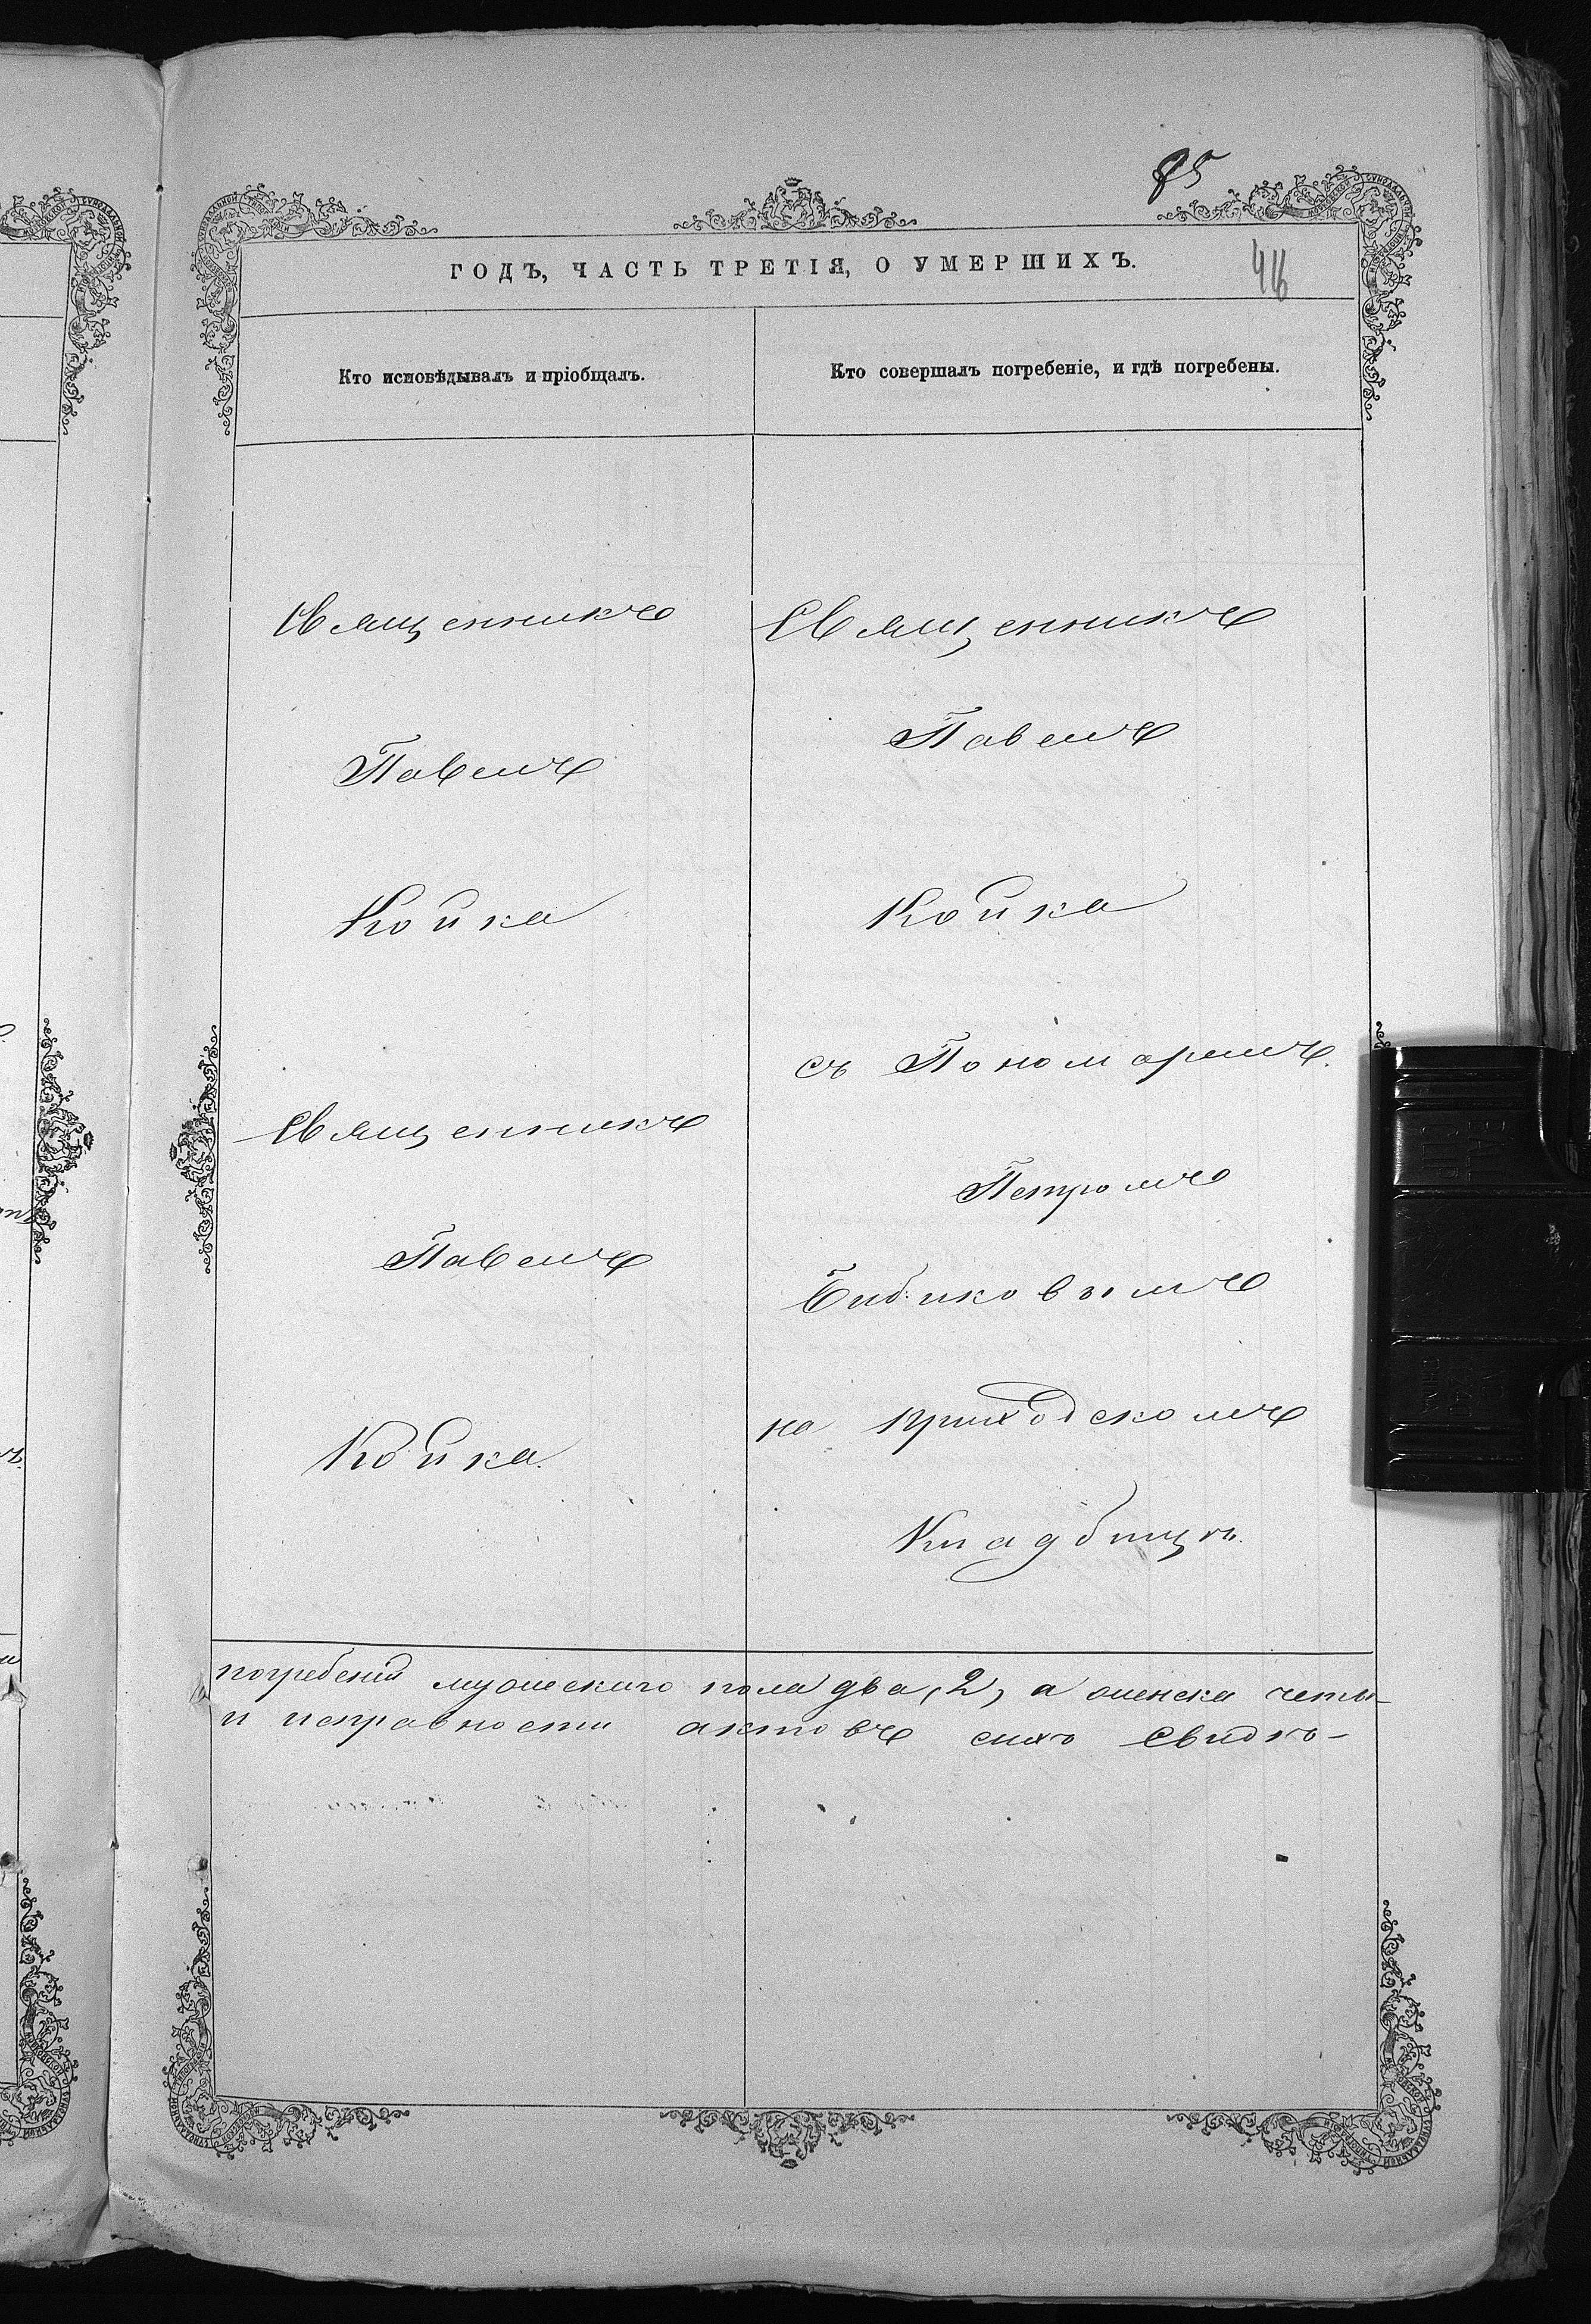 85
ГОДЪ, ЧАСТЬ ТРЕТІЯ, О УМЕРШИХЪ.
416
Кто исповѣдывалъ и пріобщалъ.
Кто совершалъ погребеніе, и гдѣ погребены.
Священникъ
Павелъ
Койка
Священникъ
Павелъ
Койка.
Священникъ
Павелъ
Койка
съ Пономаремъ
Петромъ
Бибиковымъ
на приходскомъ
Кладбищѣ.
погребений мужескаго пола два, 2, а женска четы-
и исправности актовъ сихъ свидѣ-